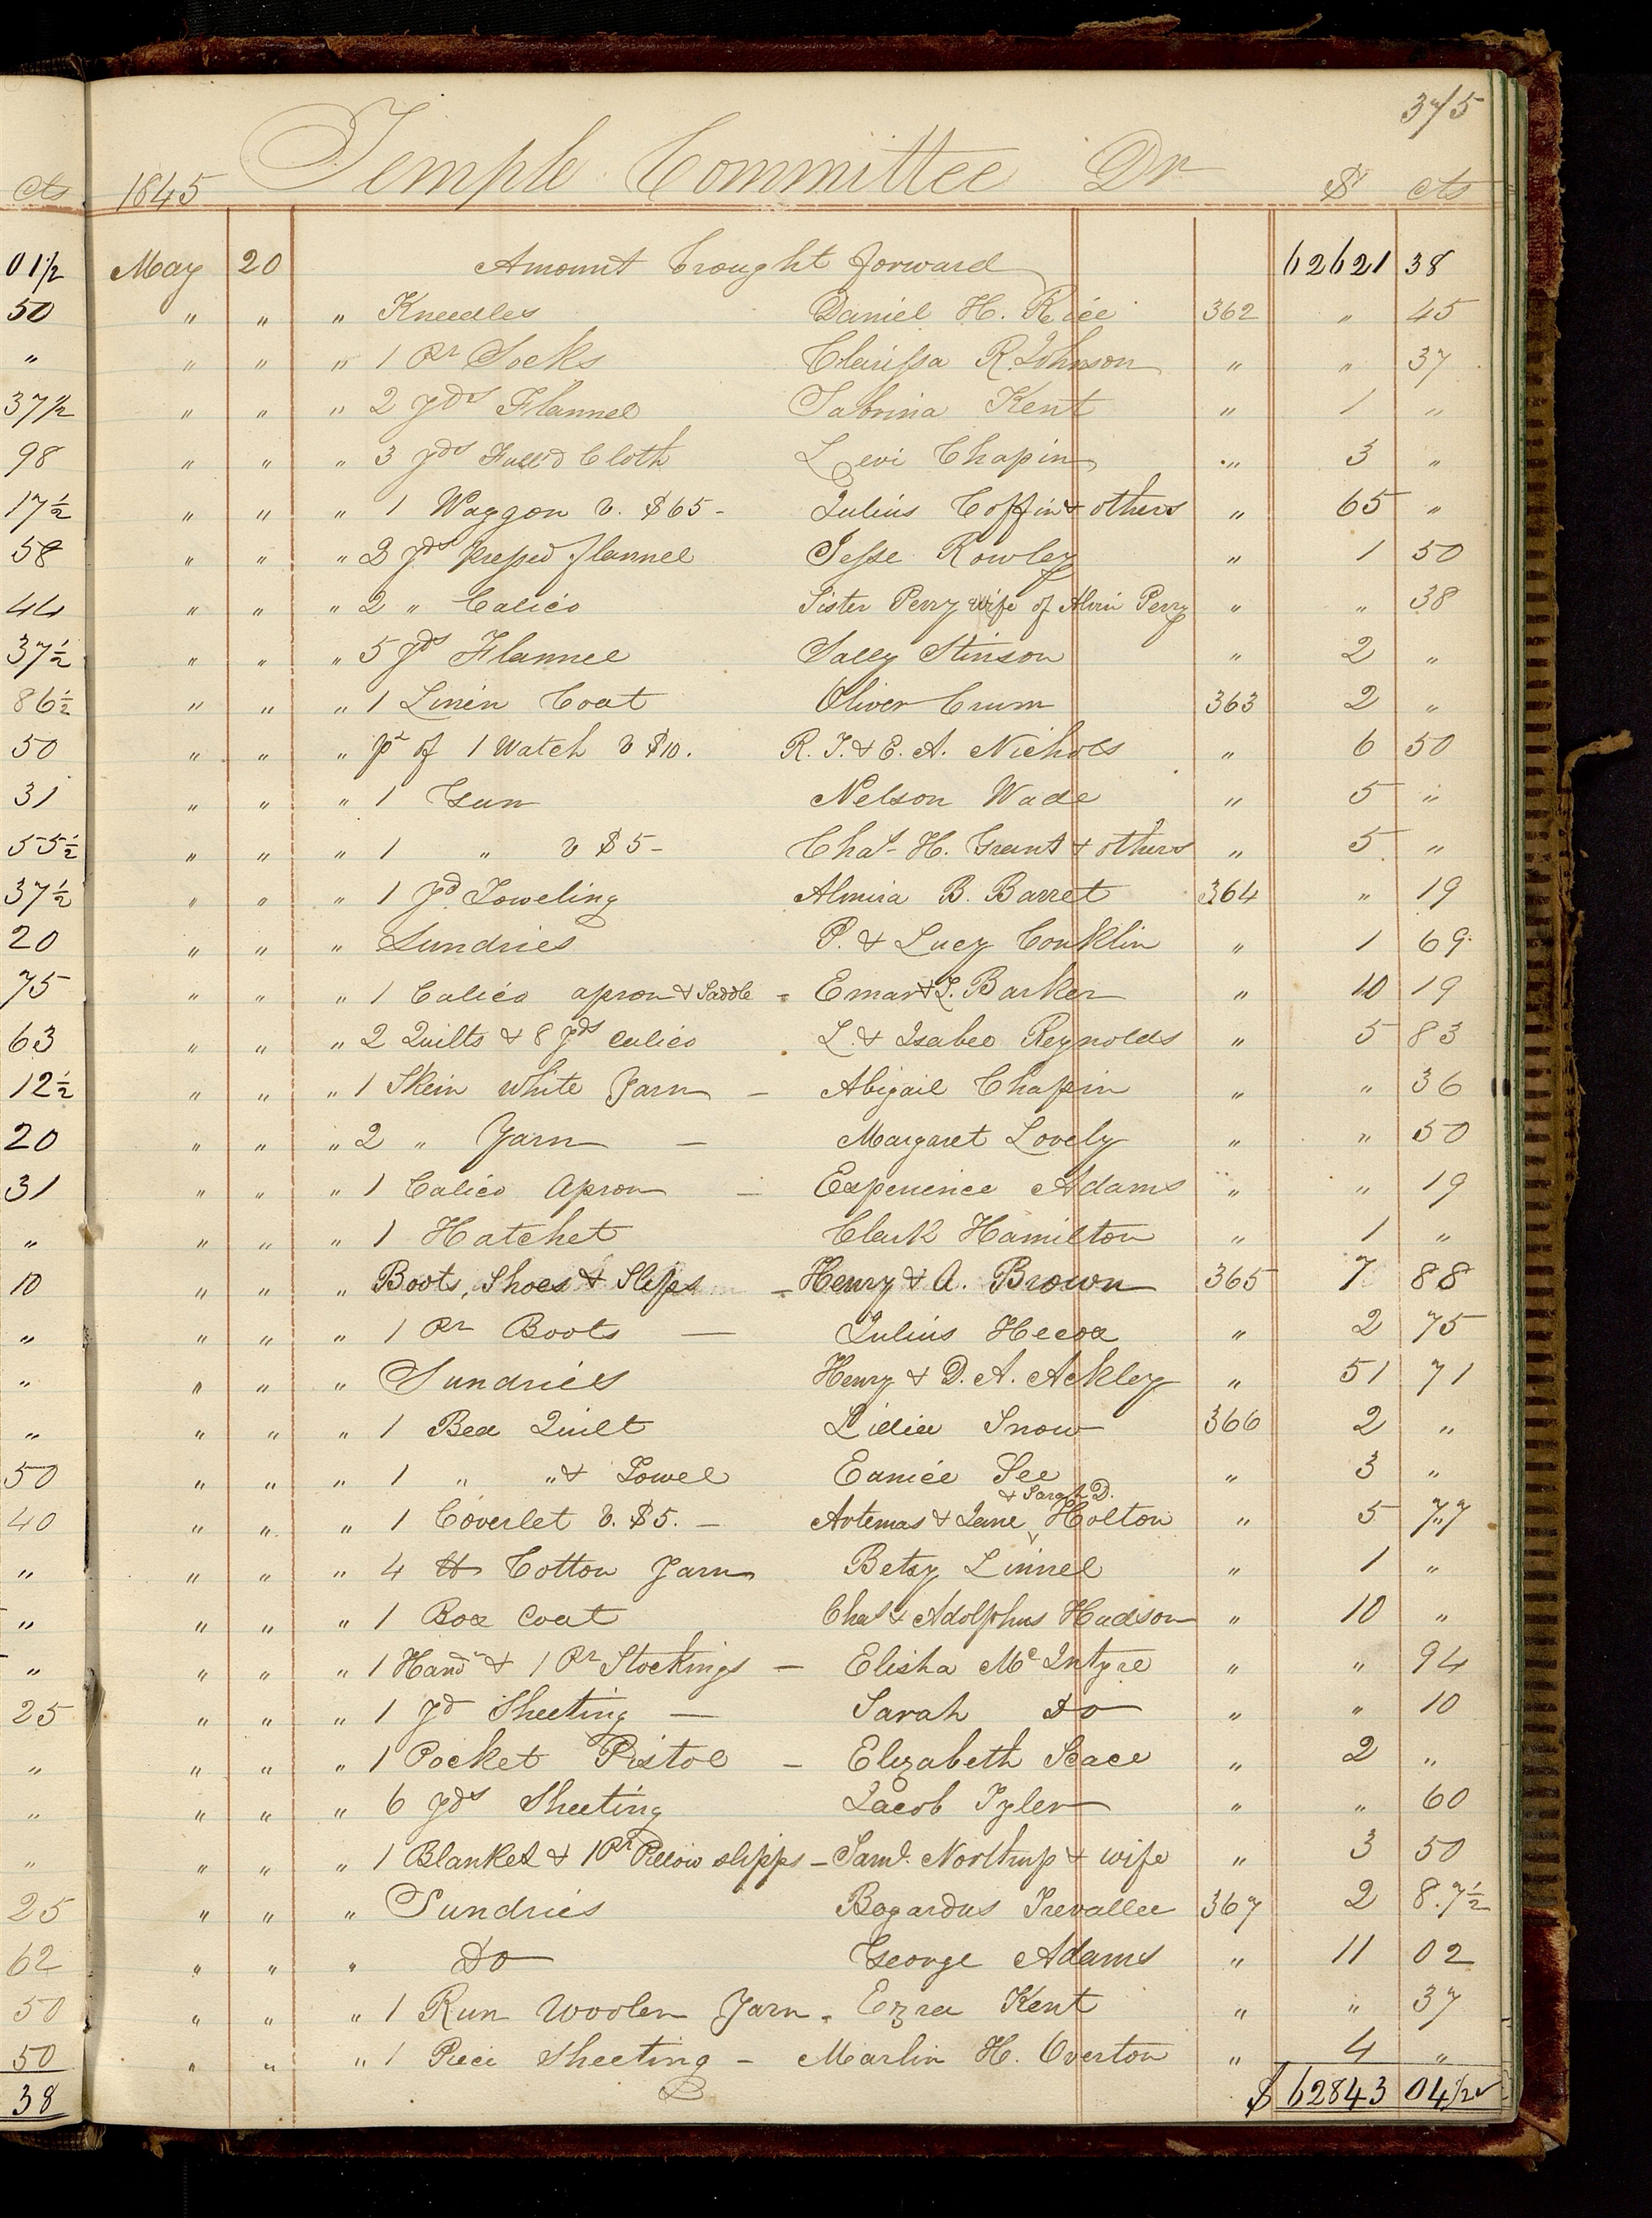 375
Temple Committee Dr
cts 1845 $ cts
01/2 May 20 Amount brought forward 62621 38
50 " " " Kneedles Daniel H. Rice 362 " 45
" " " " 1 Pr Socks Clarissa R. Johnson " " 37
37 1/2 " " " 2 Yds Flannel Sabrina Kent " 1 "
98 " " " 3 Yds Full'd Cloth Levi Chapin " 3 "
17 1/2 " " " 1 Waggon v. $65- Julius Coffin & others " 65 "
58 " " " 3 Yds Presse'd flannel Jesse Rowley " 1 50
44 " " " 2 " Calico Sister Perry wife of Alvin Perry " " 38
37 1/2 " " " 5 Yds Flannel Sally Stinson " 2 "
86 1/2 " " " 1 Linen Coat Oliver Crum 363 2 "
50 " " " pt of 1 Watch v $10. R. T. & E. A. Nichols " 6 50
31 " " " 1 Gun Nelson Wade " 5 "
55 1/2 " " " 1 " v $5- Chas. H. Grant & others " 5 "
37 1/2 " " " 1 Yd Toweling Almira B. Barret 364 " 19
20 " " " Sundries P. & Lucy Conklin " 1 69
75 " " " 1 Calico apron & Saddle - Emar & J. Barker " 10 19
63 " " " 2 Quilts & 8 Yds Calico L. & Isabel Reynolds " 5 83
12 1/2 " " " 1 Skein White Yarn - Abigail Chapin " " 36
20 " " " 2 " Yarn - Margaret Lovely " " 50
31 " " " 1 Calico Apron - Experience Adams " " 19
" " " " 1 Hatchet Clark Hamilton " 1 "
10 " " " Boots, Shoes & Slips - Henry & A. Brown 365 7 88
" " " " 1 Pr Boots - Julius Hecox " 2 75
" " " " Sundries Henry & D. A. Ackley " 51 71
" " " " 1 Bed Quilt Lidia Snow 366 2 "
50 " " " 1 " " & Towel Eunice See " 3 "
& Sarah D.
40 " " " 1 Coverlet v. $5. - Artemas & Jane Holton " 5 77
" " " " 4 lb Cotton Yarn Betsy Linnel " 1 "
" " " " 1 Box Coat Chas & Adolphus Hudson " 10 "
" " " " 1 Hand & 1 Pr Stockings - Elisha Mc Intyre " " 94
25 " " " 1 Yd Sheeting - Sarah Do " " 10
" " " " 1 Pocket Pistol - Elizabeth Scace " 2 "
" " " " 6 Yds Sheeting Jacob Tyler " " 60
" " " " 1 Blanket & 1 Pr Pillow slipps - Saml. Northrup & wife " 3 50
25 " " " Sundries Bogardus Trevallee 367 2 8.7 1/2
62 " " " Do George Adams " 11 02
50 " " " 1 Run Woolen Yarn - Ezra Kent " " 37
50 " " " 1 Piece Sheeting - Marlin H. Overton " 4 "
38 $ 62843 04 1/2